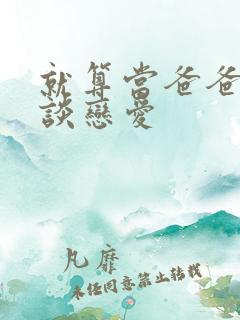 就算當爸爸
談戀愛
凡靡
未經同意禁止轉載